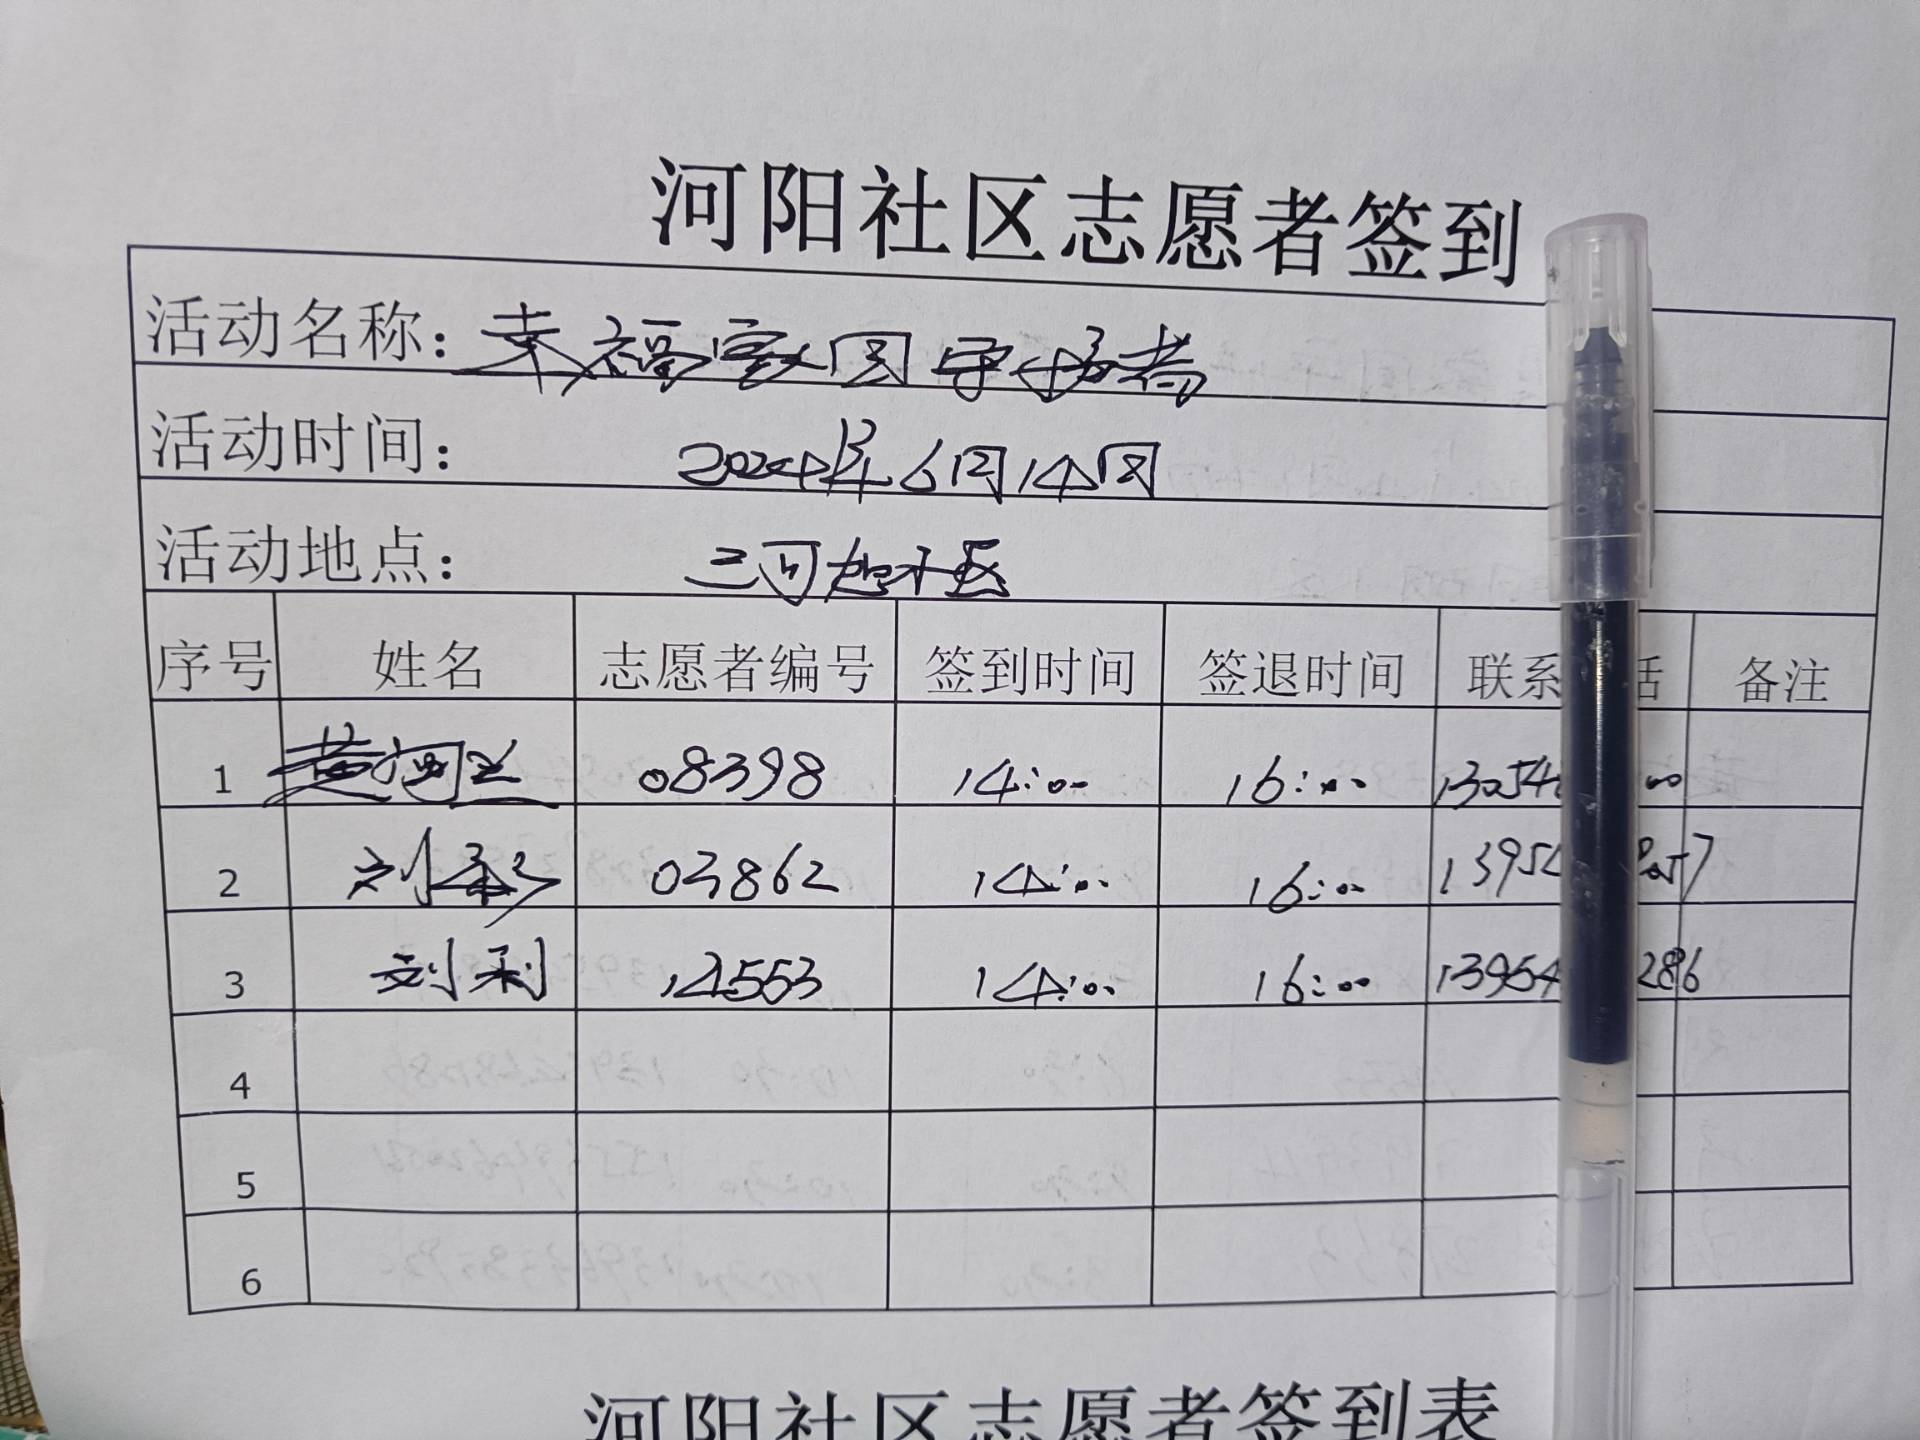 河阳社区志愿者签到
活动名称：幸福家园守护者
活动时间：2024年6月14日
活动地点：三河 小区
序号 姓名 志愿者编号 签到时间 签退时间 联系 话 备注
1 黄河 08398 14:00 16:00 13054 00
2 刘 03862 14:00 16:00 1395 57
3 刘利 14553 14:00 16:00 13954 286
4
5
6
河阳社区志愿者签到表